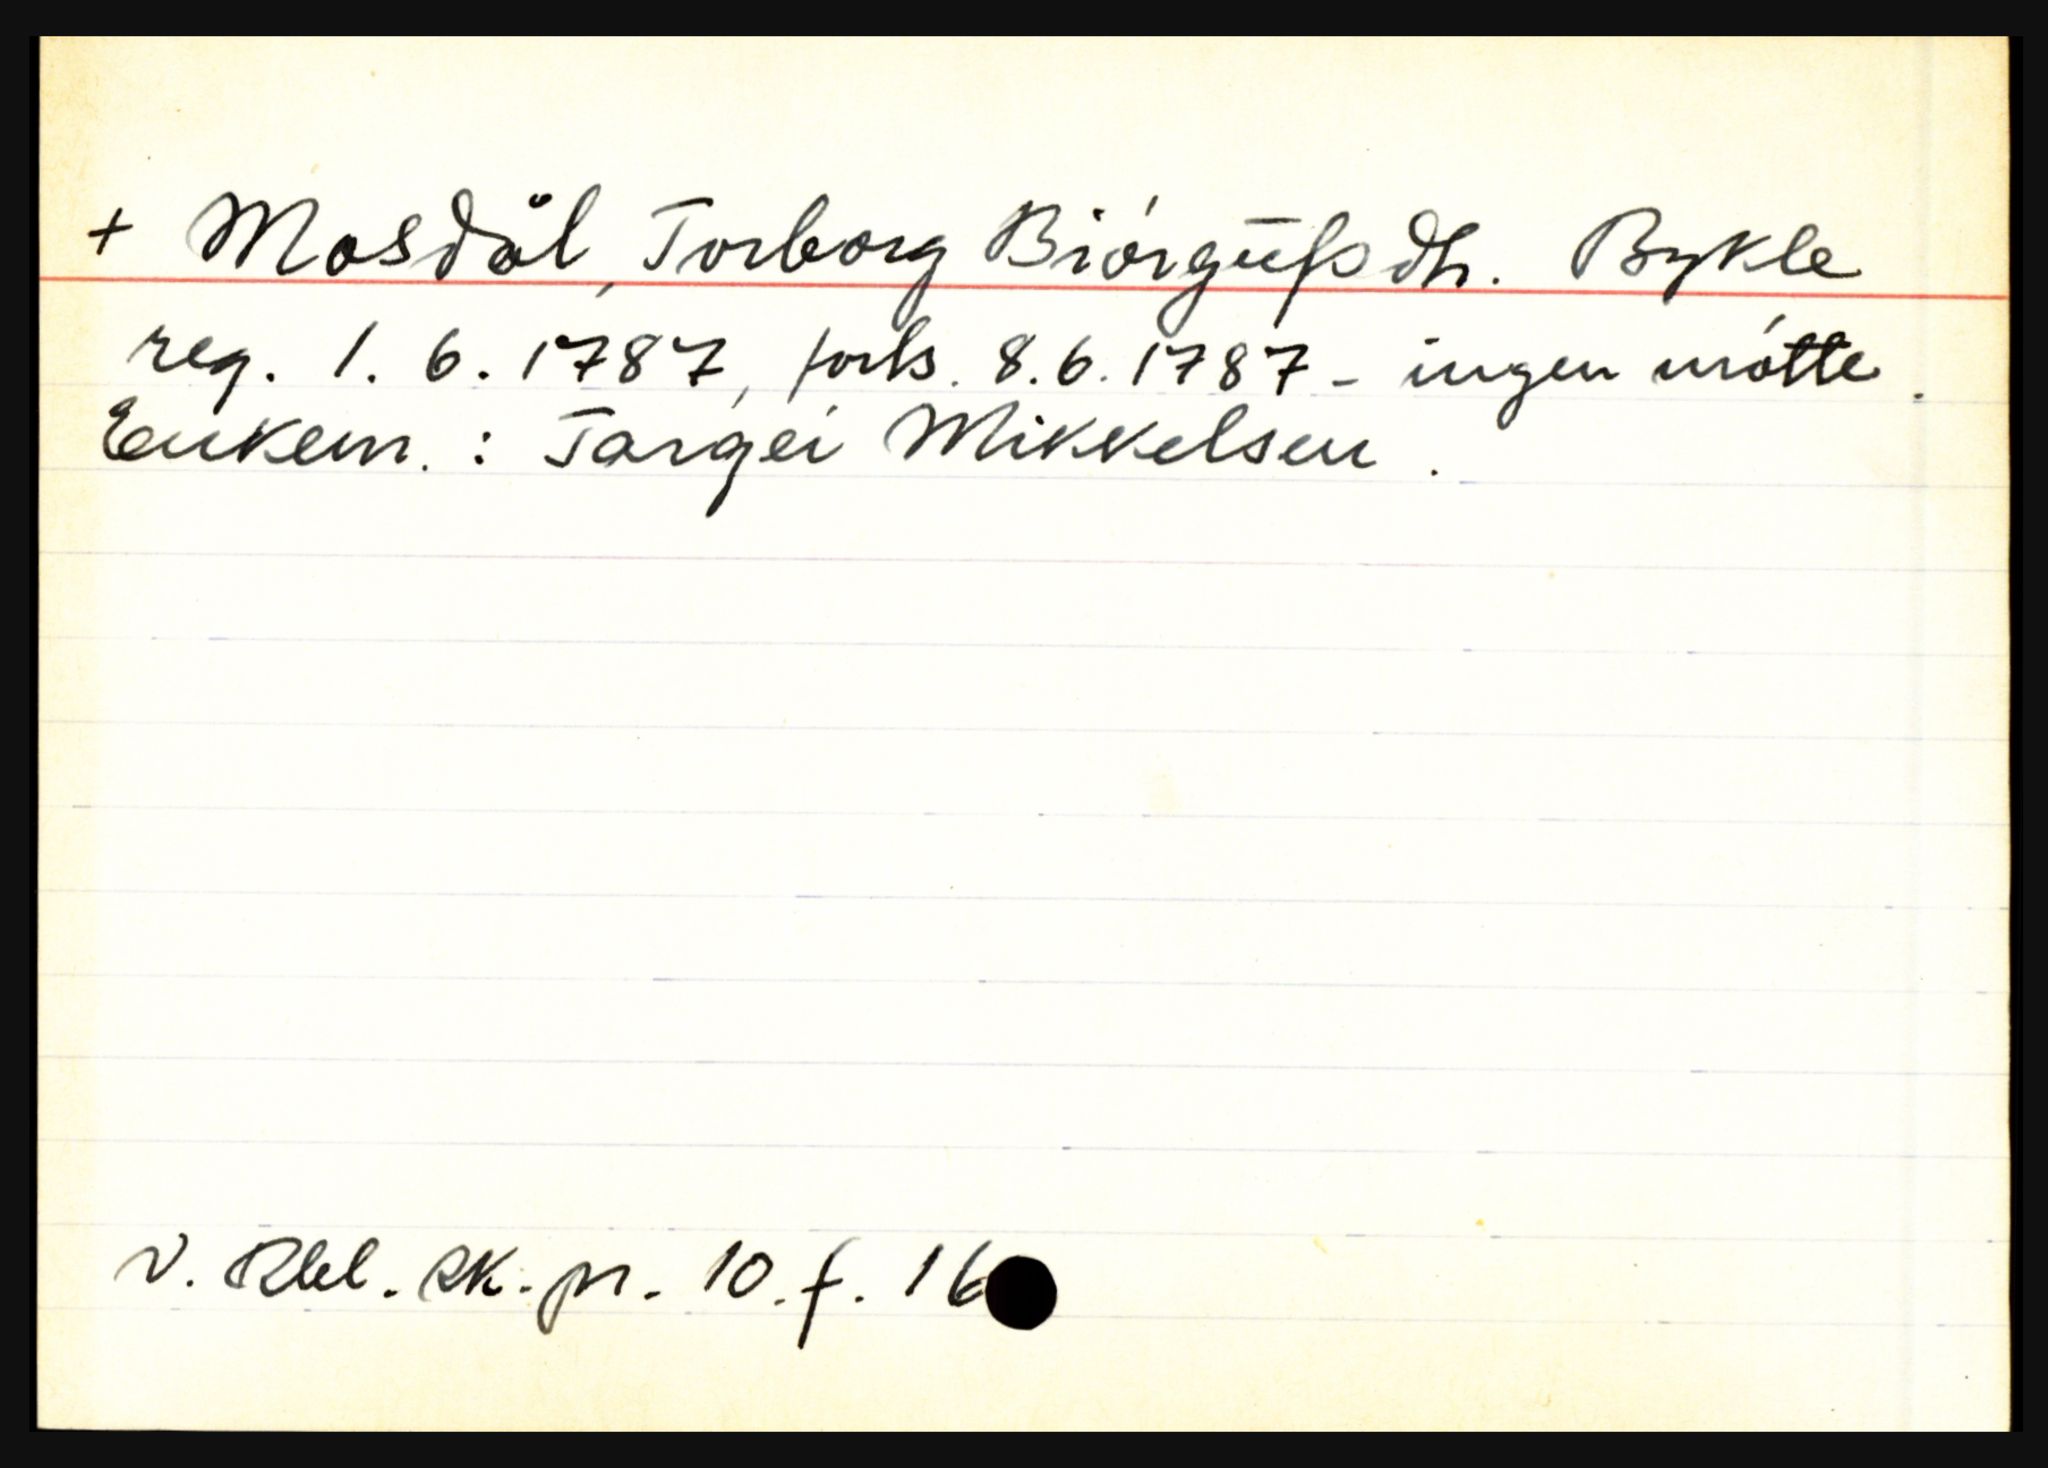 + Mosdöl, Torborg Biórgüfsdtr. Bykle
reg. 1. 6. 1787, forls. 8.6.1787 - ingen mótte.
Enkem. : Targei Mikkelsen.
V. Rbl. sk. pr. 10. f. 16